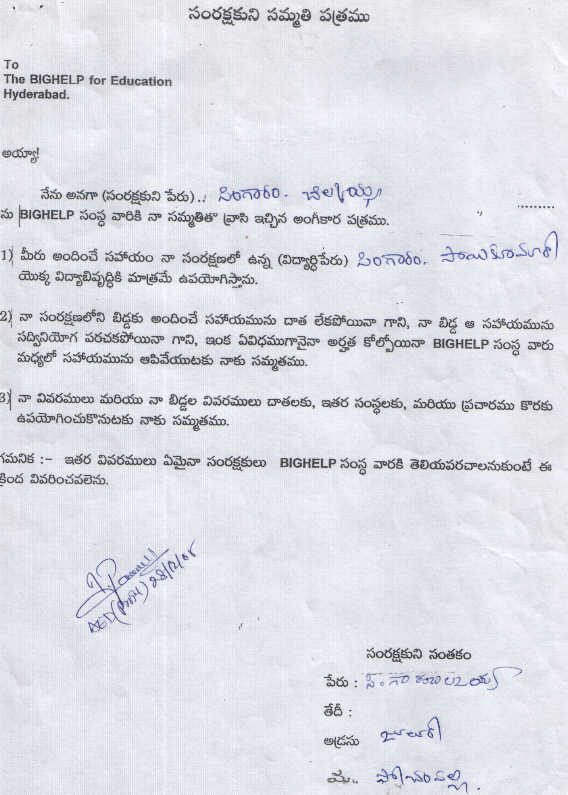 సంరక్షకుని సమ్మతి పత్రము
To
The BIGHELP for Education
Hyderabad.
అయ్యా!
నేను అనగా (సంరక్షకుని పేరు) .. సింగారం.
ను BIGHELP సంస్థ వారికి నా సమ్మతితో వ్రాసి ఇచ్చిన అంగీకార పత్రము.
1) మీరు అందించే సహాయం నా సంరక్షణలో ఉన్న (విద్యార్థిపేరు) సింగారం. సాయికుమారి
యొక్క విద్యాభివృద్ధికి మాత్రమే ఉపయోగిస్తాను.
2) నా సంరక్షణలోని బిడ్డకు అందించే సహాయమును దాత లేకపోయినా గాని, నా బిడ్డ ఆ సహాయమును
సద్వినియోగ పరచకపోయినా గాని, ఇంక ఏవిధముగానైనా అర్హత కోల్పోయినా BIGHELP సంస్థ వారు
మధ్యలో సహాయమును ఆపివేయుటకు నాకు సమ్మతము.
3) నా వివరములు మరియు నా బిడ్డల వివరములు దాతలకు, ఇతర సంస్థలకు, మరియు ప్రచారము కొరకు
ఉపయోగించుకొనుటకు నాకు సమ్మతము.
గమనిక :- ఇతర వివరములు ఏమైనా సంరక్షకులు BIGHELP సంస్థ వారకి తెలియపరచాలనుకుంటే ఈ
క్రింద వివరించవలెను.
సంరక్షకుని సంతకం
పేరు :
తేదీ :
అడ్రసు జూలూరి
మ.. పోచంపల్లి.